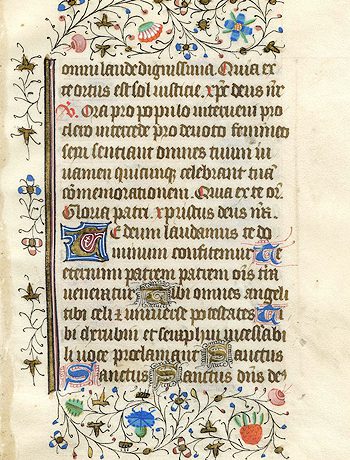 omni laude dignissima. Quia ex
te ortus est sol iusticie. xp̅c deus nr̅
Ora pro populo interueni pro
clero intercede pro deuoto femineo
sexu sentiant omnes tuum iu
uamen quicumq̅ celebrant tua̅
co̅memorationem. Quia ex te or̅
Gloria patri. xpristus deus nr̅a.
Te deum laudamus te do
minum confitemur Te
eternum patrem patrem o̅is t̅ra
ueneratur Tibi omnes angeli
tibi celi & uniuerse potestates Ti
bi cherubin et seraphin i̅cessabi
li uoce proclamant Sanctus
Sanctus Sanctus dn̅s de